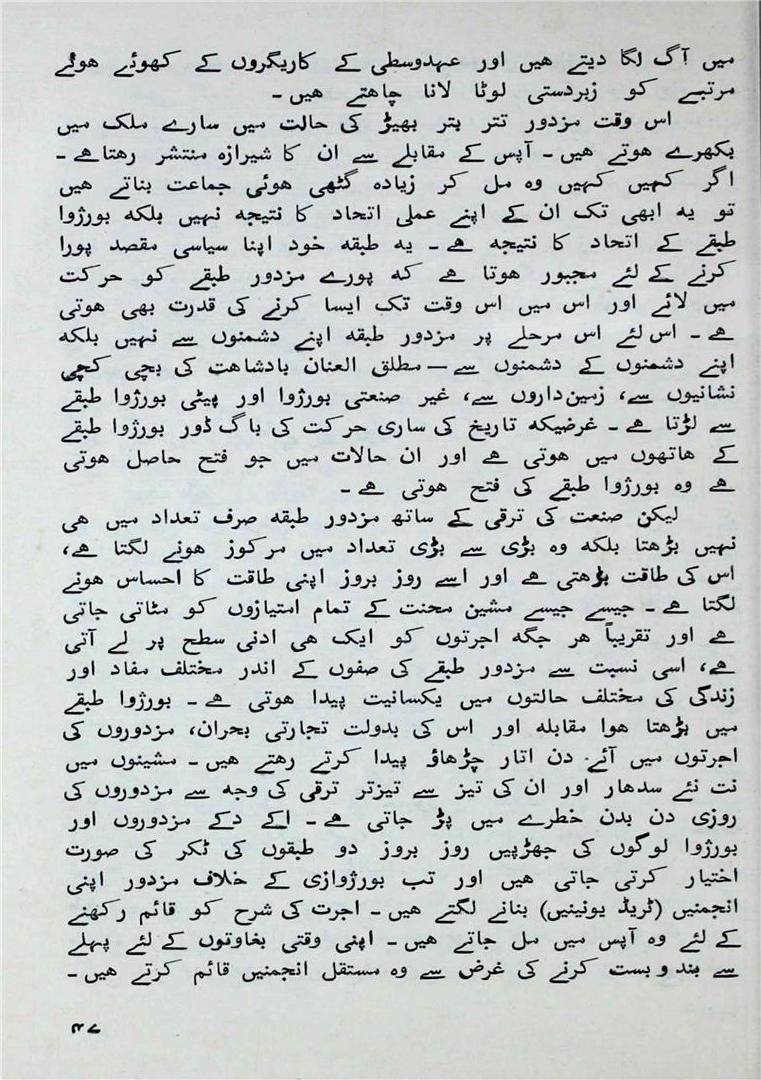 میں آگ لگا دیتے هیں اور عہدوسطی کے کاریگروں کے کھوئے هوئے
مرتبے کو زبردستی لوٹا لانا چاهتے هیں ۔
اس وقت مزدور تتر بتر بھیڑ کی حالت میں سارے ملک میں
بکھرے هوتے هیں ۔ آپس کے مقابلے سے ان کا شیرازہ منتشر رهتاہے ۔
اگر کہیں کہیں وہ مل کر زیادہ گٹھی هوئی جماعت بناتے هیں
تو یہ ابھی تک ان کے اپنے عملی اتحاد کا نتیجہ نہیں بلکہ بورژوا
طبقے کے اتحاد کا نتیجہ هے ۔ یہ طبقہ خود اپنا سیاسی مقصد پورا
کرنے کے لئے مجبور هوتا هے کہ پورے مزدور طبقے کو حرکت
میں لائے اور اس میں اس وقت تک ایسا کرنے کی قدرت بھی هوتی
هے ۔ اس لئے اس مرحلے پر مزدور طبقہ اپنے دشمنوں سے نہیں بلکہ
اپنے دشمنوں کے دشمنوں سے — مطلق العنان بادشاهت کی بچی کھچی
نشانیوں سے، زمین‌داروں سے، غیر صنعتی بورژوا اور پیٹی بورژوا طبقے
سے لڑتا هے ۔ غرضیکہ تاریخ کی ساری حرکت کی باگ ڈور بورژوا طبقے
کے هاتھوں میں هوتی هے اور ان حالات میں جو فتح حاصل هوتی
هے وہ بورژوا طبقے کی فتح هوتی هے ۔
لیکن صنعت کی ترقی کے ساتھ مزدور طبقہ صرف تعداد میں هی
نہیں بڑھتا بلکہ وہ بڑی سے بڑی تعداد میں مرکوز هونے لگتا هے،
اس کی طاقت بڑھتی هے اور اسے روز بروز اپنی طاقت کا احساس هونے
لگتا هے ۔ جیسے جیسے مشین محنت کے تمام امتیازوں کو مٹاتی جاتی
هے اور تقریباً هر جگہ اجرتوں کو ایک هی ادنی سطح پر لے آتی
هے، اسی نسبت سے مزدور طبقے کی صفوں کے اندر مختلف مفاد اور
زندگی کی مختلف حالتوں میں یکسانیت پیدا هوتی هے ۔ بورژوا طبقے
میں بڑھتا هوا مقابلہ اور اس کی بدولت تجارتی بحران، مزدوروں کی
اجرتوں میں آئے دن اتار چڑھاؤ پیدا کرتے رهتے هیں ۔ مشینوں میں
نت نئے سدھار اور ان کی تیز سے تیزتر ترقی کی وجہ سے مزدوروں کی
روزی دن بدن خطرے میں پڑ جاتی هے ۔ اکے دکے مزدوروں اور
بورژوا لوگوں کی جھڑپیں روز بروز دو طبقوں کی ٹکر کی صورت
اختیار کرتی جاتی هیں اور تب بورژوازی کے خلاف مزدور اپنی
انجمنیں (ٹریڈ یونینیں) بنانے لگتے هیں ۔ اجرت کی شرح کو قائم رکھنے
کے لئے وہ آپس میں مل جاتے هیں ۔ اپنی وقتی بغاوتوں کے لئے پہلے
سے بند و بست کرنے کی غرض سے وہ مستقل انجمنیں قائم کرتے هیں ۔
۴۷